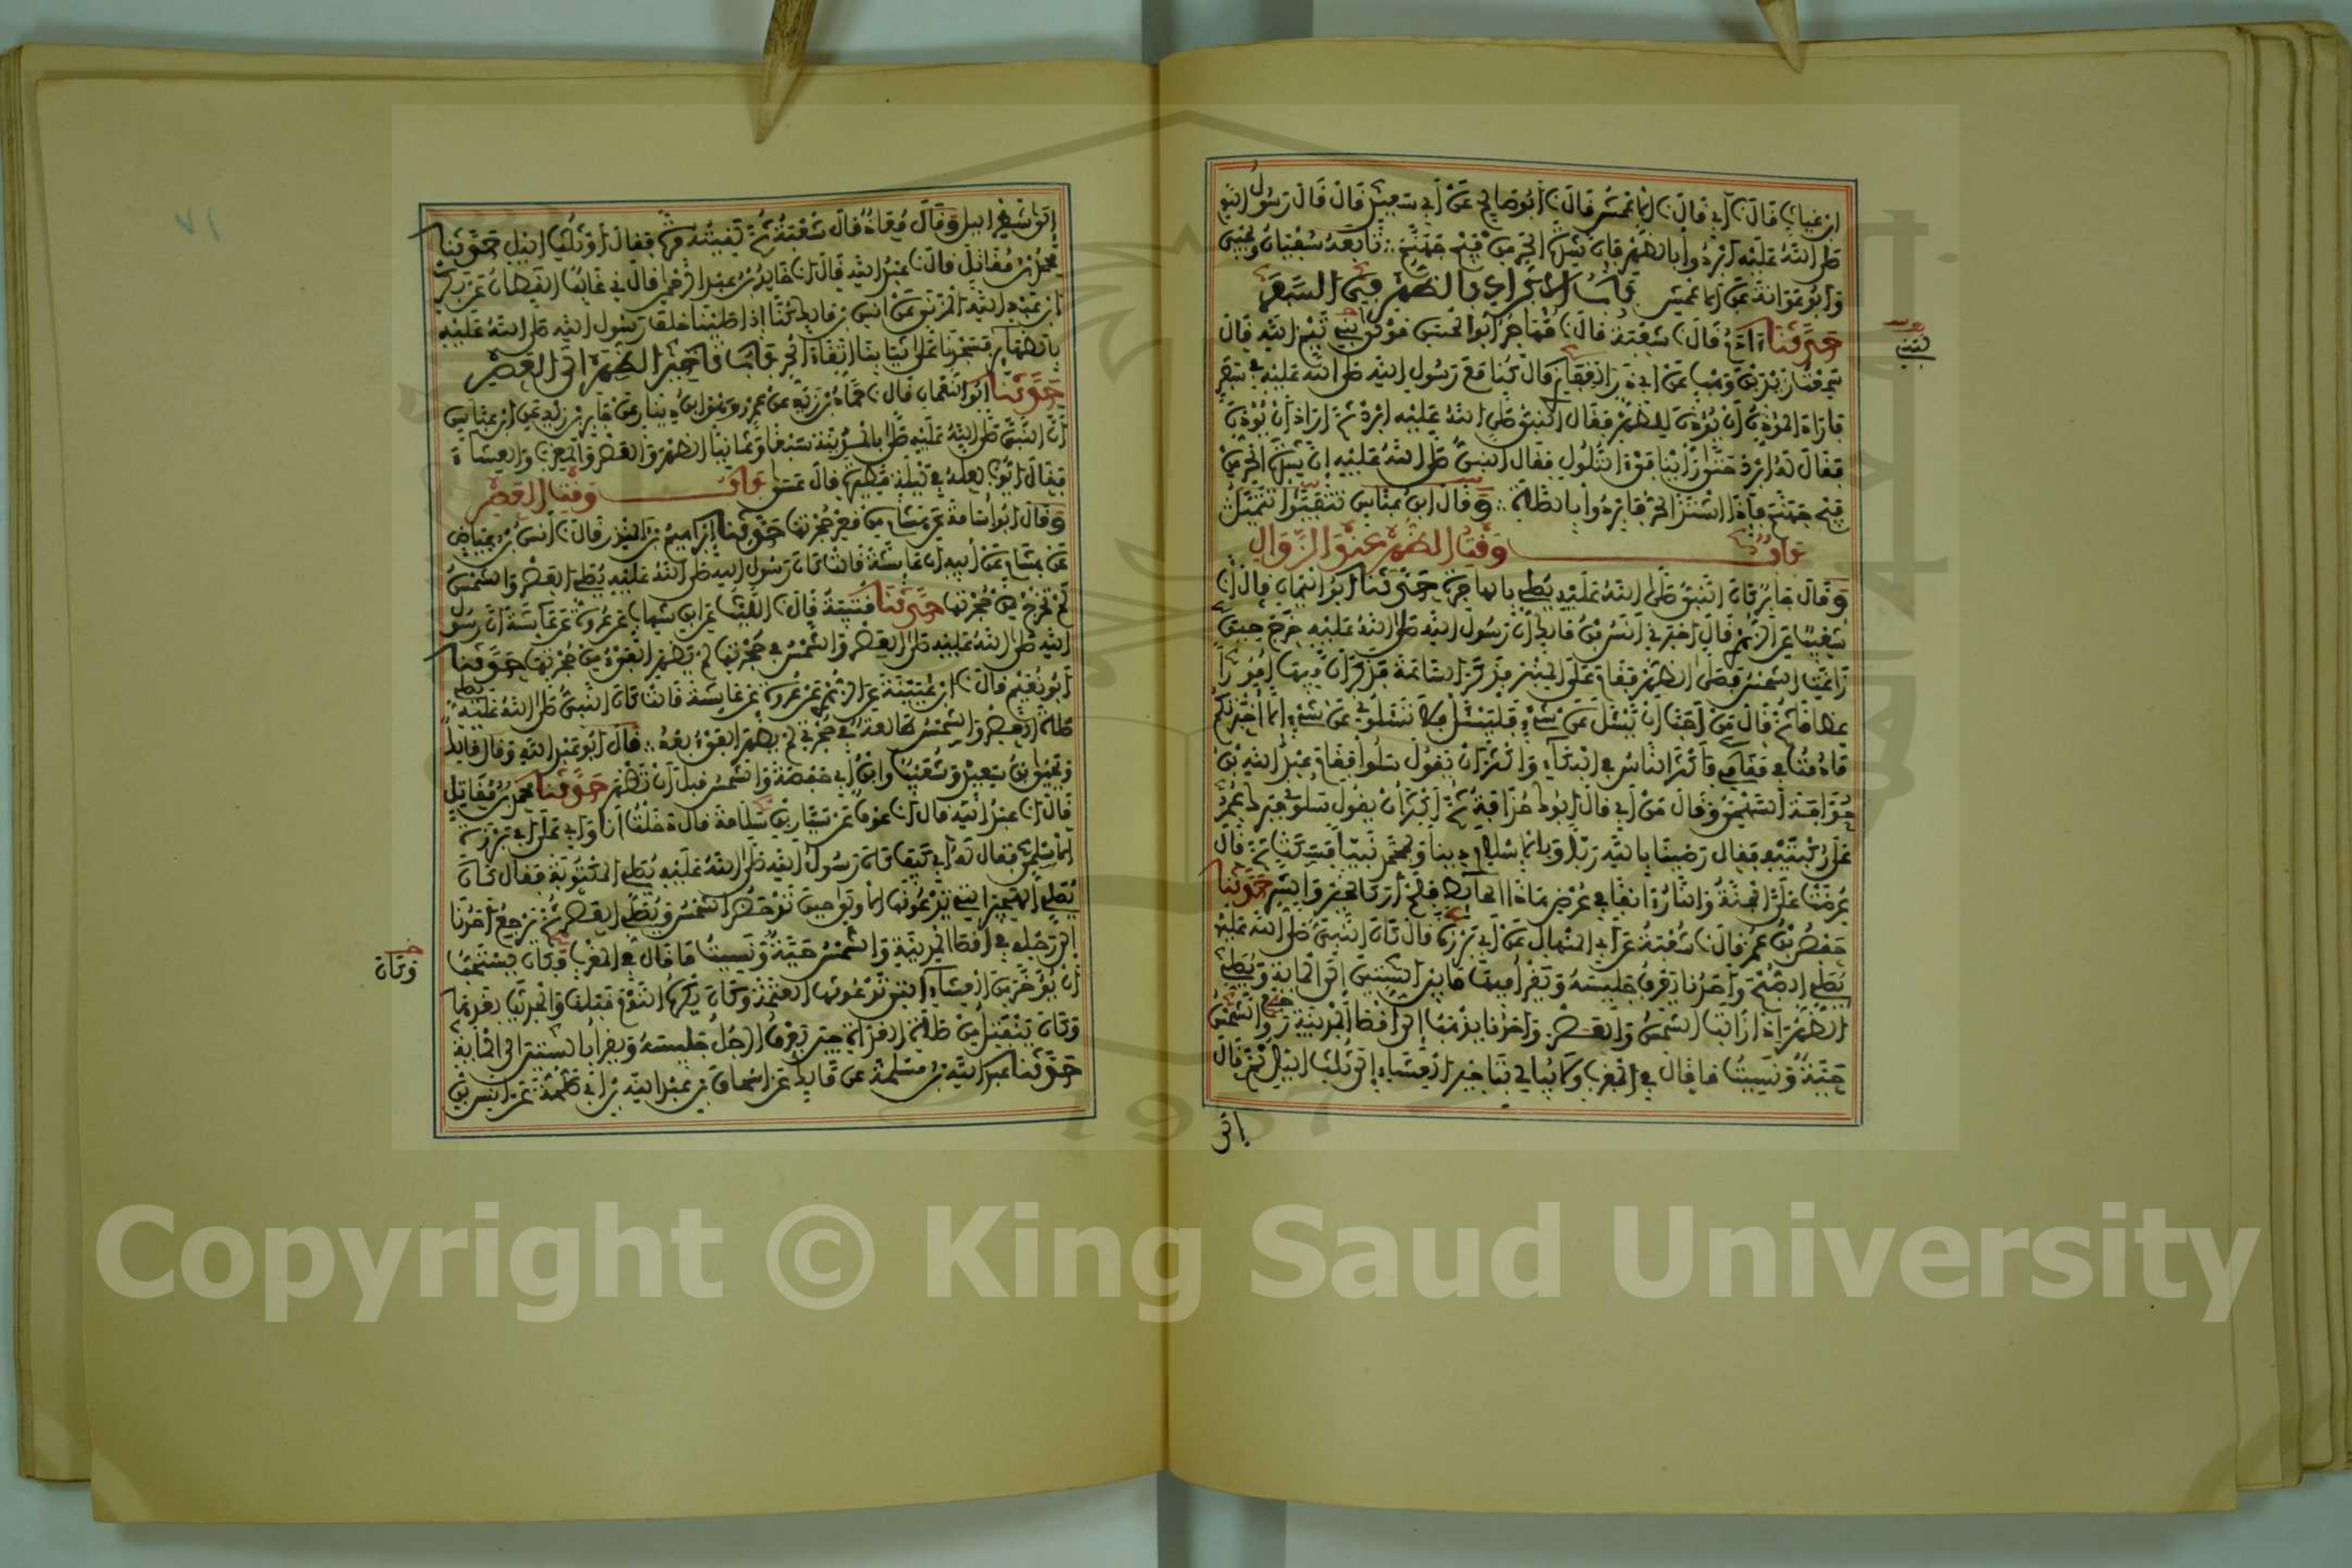 ابن غياث قال نا أبي قال نا الاعمش قال نا أبو صالح عن أبي سعيد قال قال رسول الله
صلى الله عليه أبردوا بالظهر فإن شدة الحر من فيح جهنم تابعه سفيان ويحيى
وأبو عوانة عن الاعمش باب الابراد بالظهر في السفر
حدثنا ءادم قال نا شعبة قال نا مهاجر أبو الحسن مولى بني تيم الله قال
سمعت زيد بن وهب عن أبي ذر الغفاري قال كنا مع رسول الله صلى الله عليه في سفر
فأراد المؤذن أن يؤذن للظهر فقال النبي صلى الله عليه أبرد ثم أراد أن يؤذن
فقال له أبرد حتى رأينا فيء التلول فقال النبي صلى الله عليه إن شدة الحر من
فيح جهنم فإذا اشتد الحر فأبردوا بالصلاة وقال ابن عباس تتفيؤا تتميل
باب وقت الظهر عند الزوال
وقال جابر كان النبي صلى الله عليه يصلي بالهاجرة حدثنا أبو اليمان قال نا
شعيب عن الزهري قال أخبرني أنس بن مالك أن رسول الله صلى الله عليه خرج حين
زاغت الشمس فصلى الظهر فقام على المنبر فذكر الساعة فذكر أن فيها أمورا
عظاما ثم قال من أحب أن يسئل عن شيء فليسئل فلا تسئلوني عن شيء إلا أخبرتكم
مادمت في مقامي فأكثر الناس في البكاء وأكثر أن يقول سلوا فقام عبد الله بن
حذافة السهمي فقال من أبي قال أبوك حذافة ثم أكثر أن يقول سلوني فبرك عمر
على ركبتيه فقال رضينا بالله ربا وبالاسلام دينا وبمحمد نبيا فسكت ثم قال
عرضت علي الجنة والنار ءانفا في عرض هاذا الحائط فلم أر كالخير والشر حدثنا
حفص بن عمر قال نا شعبة عن أبي المنهال عن أبي برزة قال كان النبي صلى الله عليه
يصلي الصبح وأحدنا يعرف جليسه ويقرأ فيها ما بين الستين إلى المائة ويصلي
الظهر إذا زالت الشمس والعصر وأحدنا يذهب إلى أقصا المدينة رجع والشمس
حية ونسيت ما قال في المغرب ولا يبالي بتأخير العشاء إلى ثلث الليل ثم قال
إلى
إلى شطر الليل وقال معاذ قال شعبة ثم لقيته مرة فقال أو ثلث الليل حدثنا
محمد بن مقاتل قال نا عبد الله قال نا خالد بن عبد الرحمن قال ني غالب القطان عن بكر
ابن عبد الله المزني عن أنس بن مالك كنا إذا صلينا خلف رسول الله صلى الله عليه
بالظهائر فسجدنا على ثيابنا اتقاء الحر باب تأخير الظهر إلى العصر
حدثنا أبو النعمان قال نا حماد بن زيد عن عمرو وهو ابن دينار عن جابر بن زيد عن ابن عباس
أن النبي صلى الله عليه صلى بالمدينة سبعا وثمانيا الظهر والعصر والمغرب والعشاء
فقال أيوب لعله في ليلة مطيرة قال عسى باب وقت العصر
وقال أبو أسامة عن هشام من قعر حجرتها حدثنا إبراهيم بن المنذر قال نا أنس بن عياض
عن هشام عن أبيه أن عائشة قالت كان رسول الله صلى الله عليه يصلي العصر والشمس
لم تخرج من حجرتها حدثنا قتيبة قال نا الليث عن ابن شهاب عن عروة عن عائشة أن رسول
الله صلى الله عليه صلى العصر والشمس في حجرتها لم يظهر الفيء من حجرتها حدثنا
أبو نعيم قال نا ابن عيينة عن الزهري عن عروة عن عائشة قالت كان النبي صلى الله عليه يصلي
صلاة العصر والشمس طالعة في حجرتي لم يظهر الفيء بعد قال أبو عبد الله وقال مالك
ويحيى بن سعيد وشعيب وابن أبي حفصة والشمس قبل أن تظهر حدثنا محمد بن مقاتل
قال نا عبد الله قال نا عوف عن سيار بن سلامة قال دخلت أنا وأبي على أبي برزة
الاسلمي فقال له أبي كيف كان رسول الله صلى الله عليه يصلي المكتوبة فقال كان
يصلي الهجير التي تدعونها الاولى حين تدحض الشمس ويصلي العصر ثم يرجع أحدنا
إلى رحله في أقصا المدينة والشمس حية ونسيت ما قال في المغرب وكان يستحب
وكان
أن يؤخر من العشاء التي تدعونها العتمة وكان يكره النوم قبلها والحديث بعدها
وكان ينفتل من صلاة الغداة حين يعرف الرجل جليسه ويقرأ بالستين إلى المائة
حدثنا عبد الله بن مسلمة عن مالك عن اسحاق بن عبد الله بن أبي طلحة عن أنس بن
Copyright © King Saud University
1957